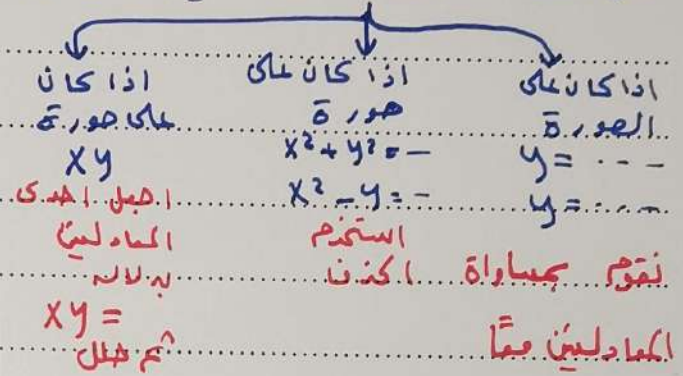 اذا كان على
الصورة
y = ...
y = ...
نقوم بمساواة
المعادلتين معًا
اذا كان على
صورة
x² + y² = -
x² - y = -
استخدم
الحذف
اذا كان
على صورة
xy
اجعل احدى
المعادلتين
بدلالة
xy =
ثم حلل